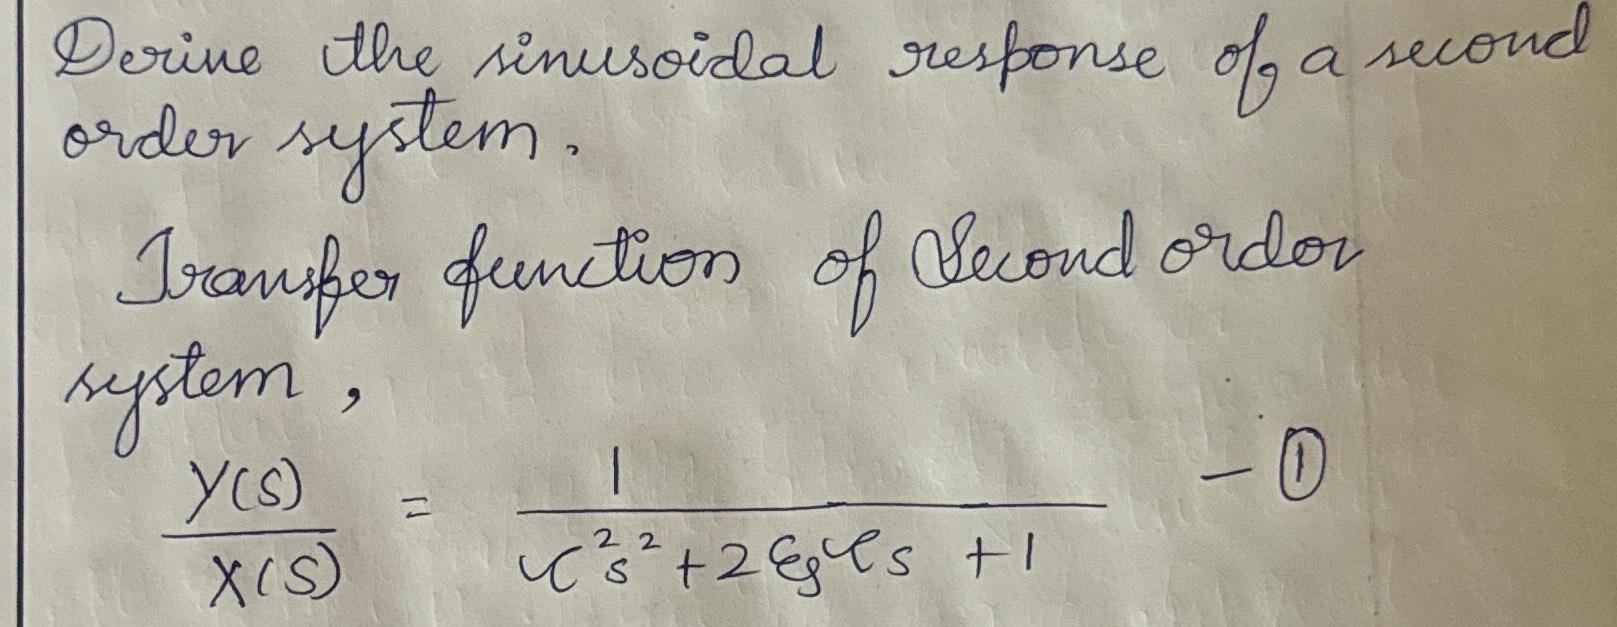 Derive the sinusoidal response of a second
order system.
Transfer function of Second order
system,
Y(S) / X(S) = 1 / τ²s² + 2ξτs + 1 - ①